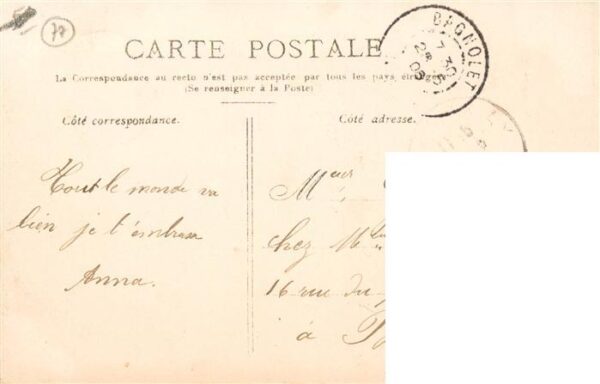 77
CARTE POSTALE
La Correspondance au recto n'est pas acceptée par tous les pays étrangers
(Se renseigner à la Poste)
BAGNOLET
7 30
Côté correspondance.
Côté adresse.
Tout le monde va
bien je t'embrasse
Anna.
chez
16 rue du
à